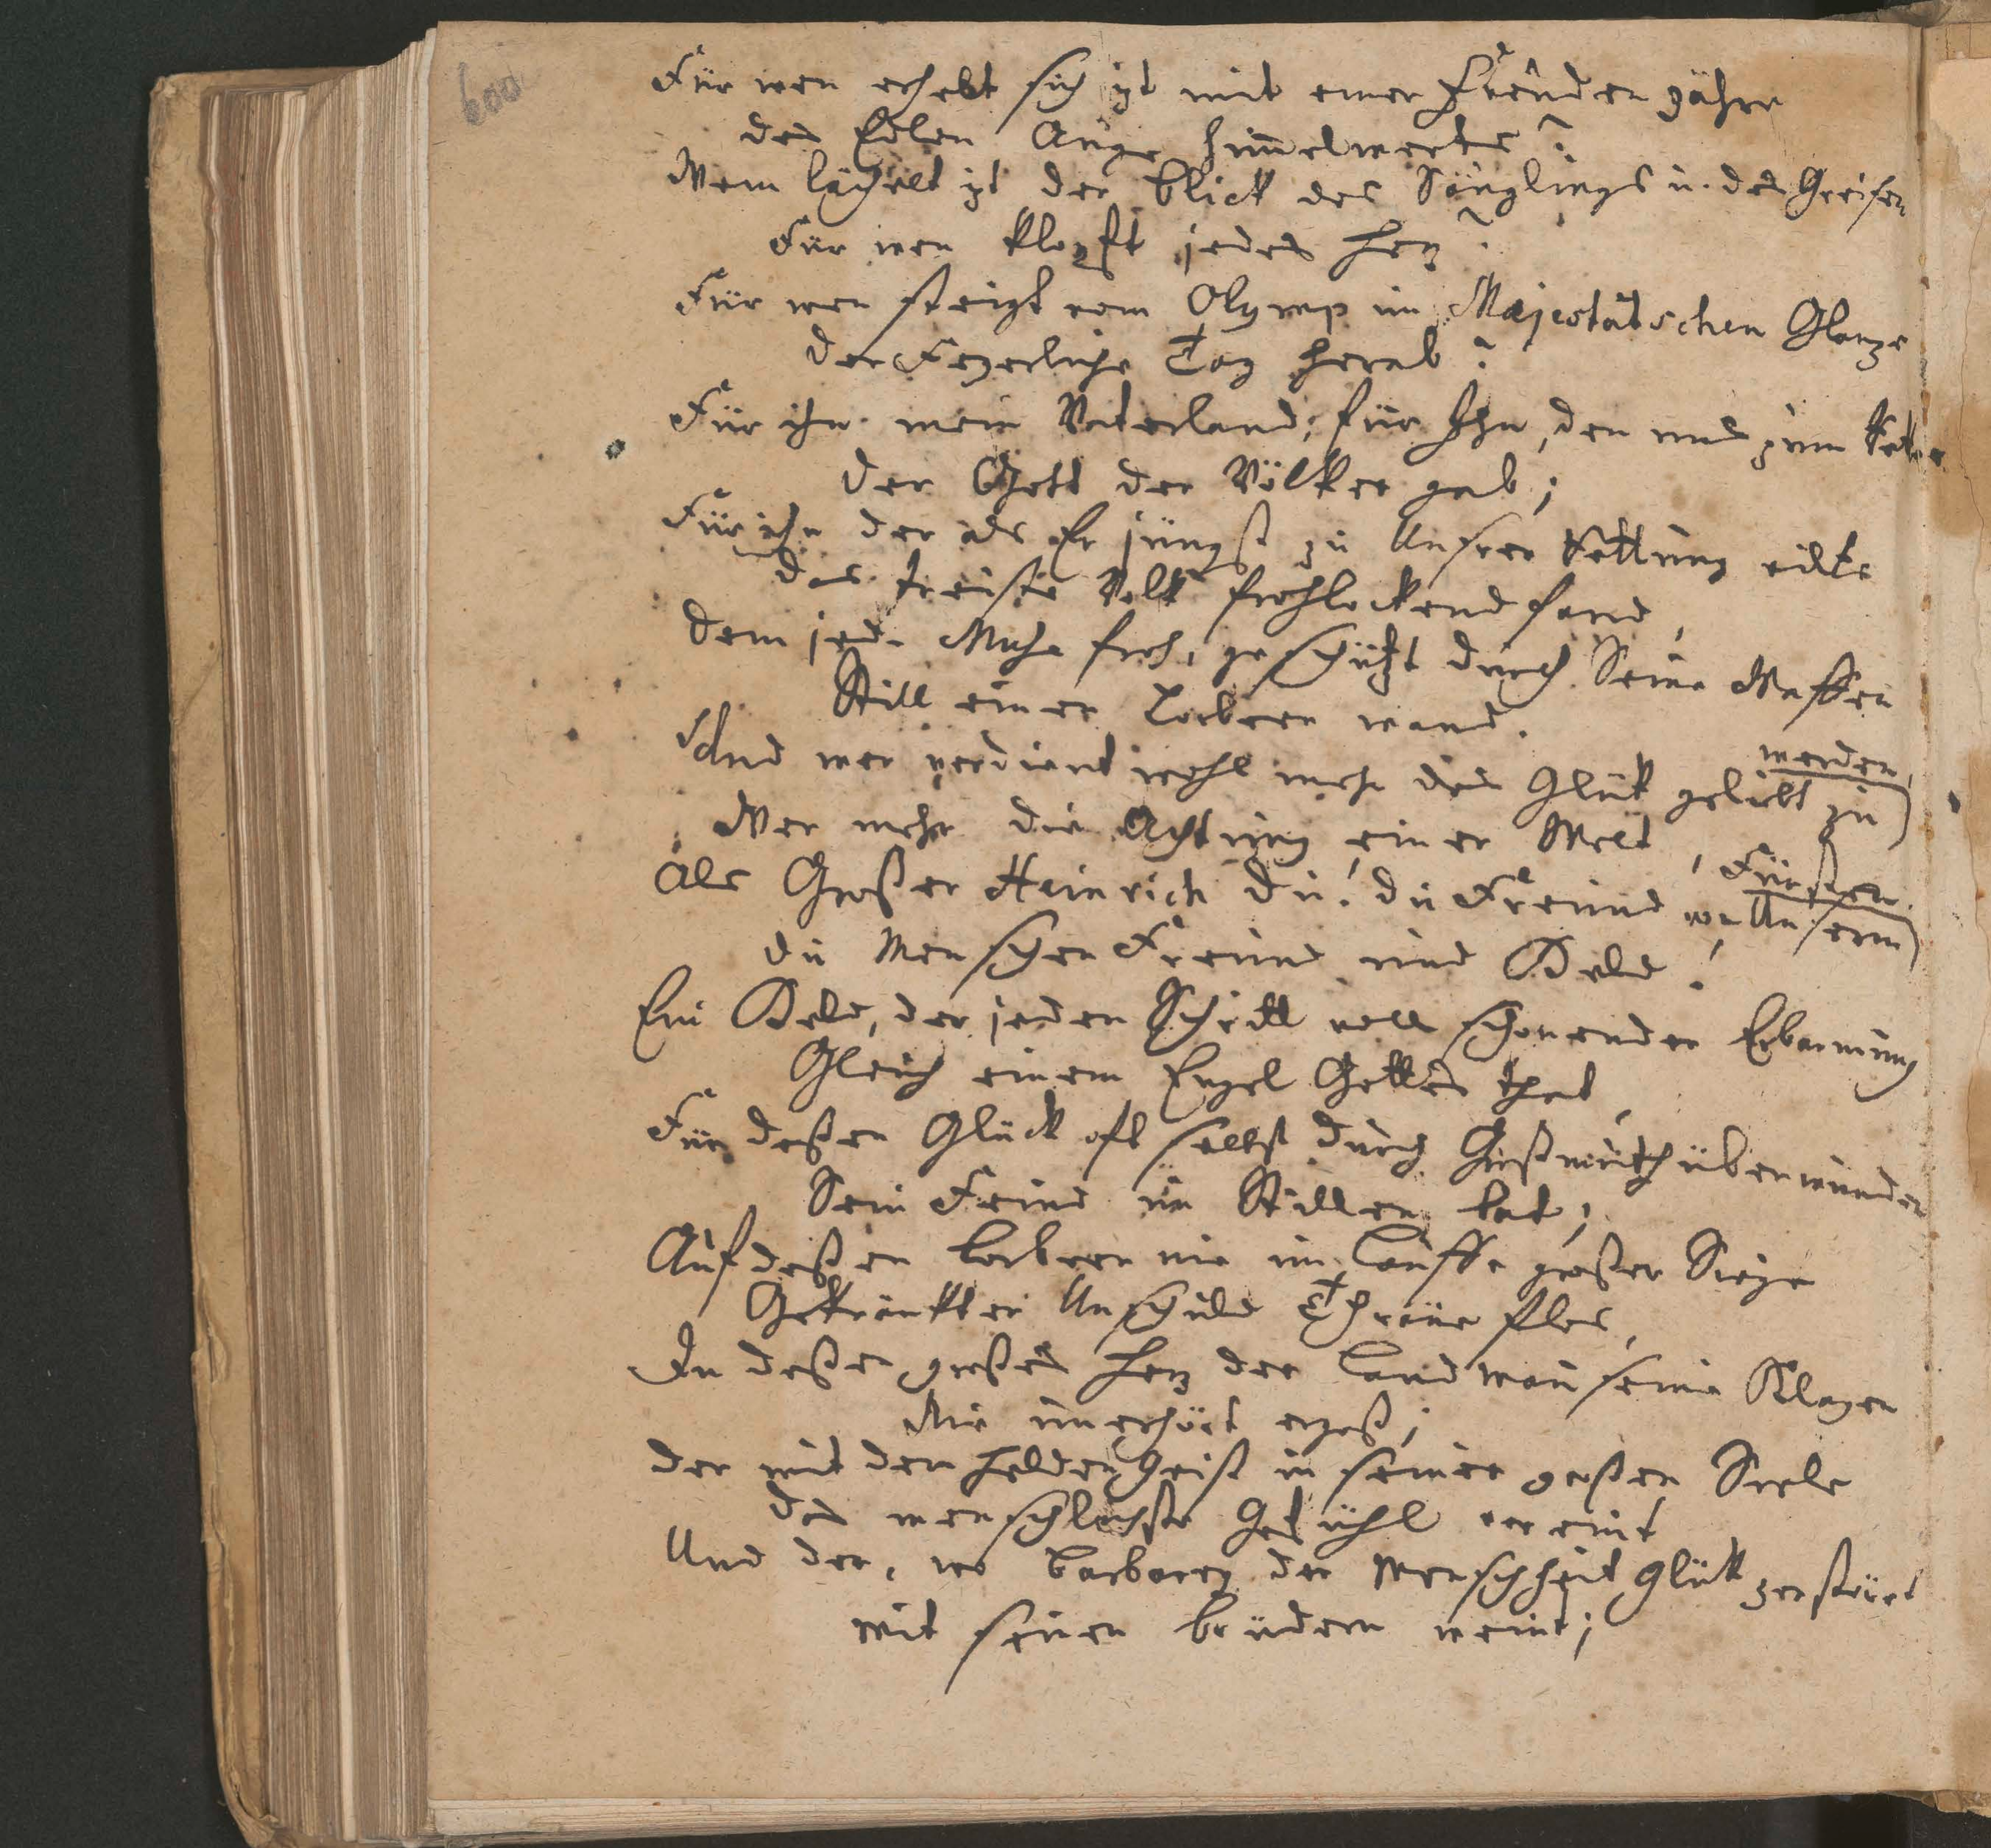 600
Für wen erhebt sich izt mit einer Freuden zähre
das Edlen Auge him̄elwerts?
Wem lächelt izt der blick des Säuglings u. des Greisen
Für wen klopft jedes herz?
Für wen steigt vom Olymp im Majestätschen Glanze
der Feyerliche Tag herab?
Für ihn mein Vaterland; für Ihn, den uns zum Vater
der Gott der Völker gab;
Für ihn der als Er jüngst zu Unsrer Rettung eilte
das treüste Volk frohlockend fand,
dem jede Muse froh, geschüzt durch Seine Waffen
Still einen Lorbeer wand.
Und wer verdient wohl mehr das Glük geliebt zu
werden,
Wer mehr die Achtung einer Welt,
Als Großer Heinrich du! du Freund von Unserm
Fürsten.
du Menschen Freund und Held!
Ein Held, der jeden Schritt voll schonender Erbarmung
Gleich einem Engel Gottes that,
Für deßen Glück oft selbst durch Großmuth überwunden
Sein Feind im Stillen bat;
Auf deßen Lorbeer nie im Lauffe großer Siege
Gekränkter Unschuld Thräne flos,
In deßen großes herz der Landman̄ seine Klagen
Nie unerhört ergoß;
der mit dem helden Geist in seiner großen Seele
das menschlichste Gefühl vereint
Und der, wo barbarey der Menschheit Glük zerstöret
mit seinen brüdern weint;